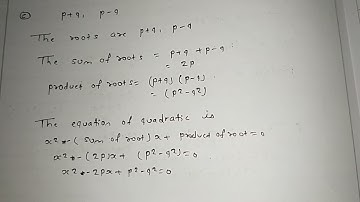 ② p+q, p-q
The roots are p+q, p-q
The sum of roots = p+q + p-q
= 2p
product of roots = (p+q) (p-q)
= (p²-q²)
The equation of quadratic is
x² - (sum of root)x + product of root = 0
x² - (2p)x + (p²-q²) = 0
x² - 2px + p²-q² = 0